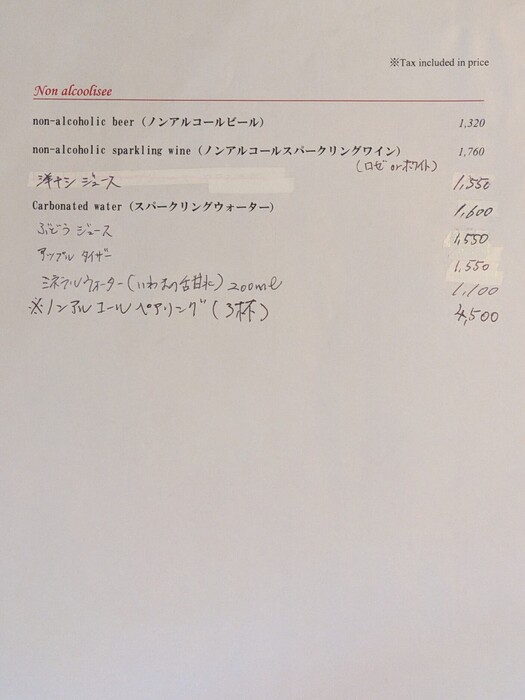 ※Tax included in price
Non alcoolisee
non-alcoholic beer (ノンアルコールビール) 1,320
non-alcoholic sparkling wine (ノンアルコールスパークリングワイン) 1,760
(ロゼ or ホワイト)
洋ナシ ジュース 1,550
Carbonated water (スパークリングウォーター) 1,600
ぶどう ジュース 1,550
アップル タイザー 1,550
ミネラルウォーター (いわまの甘水) 200ml 1,100
※ノンアルコールペアリング (3杯) 4,500